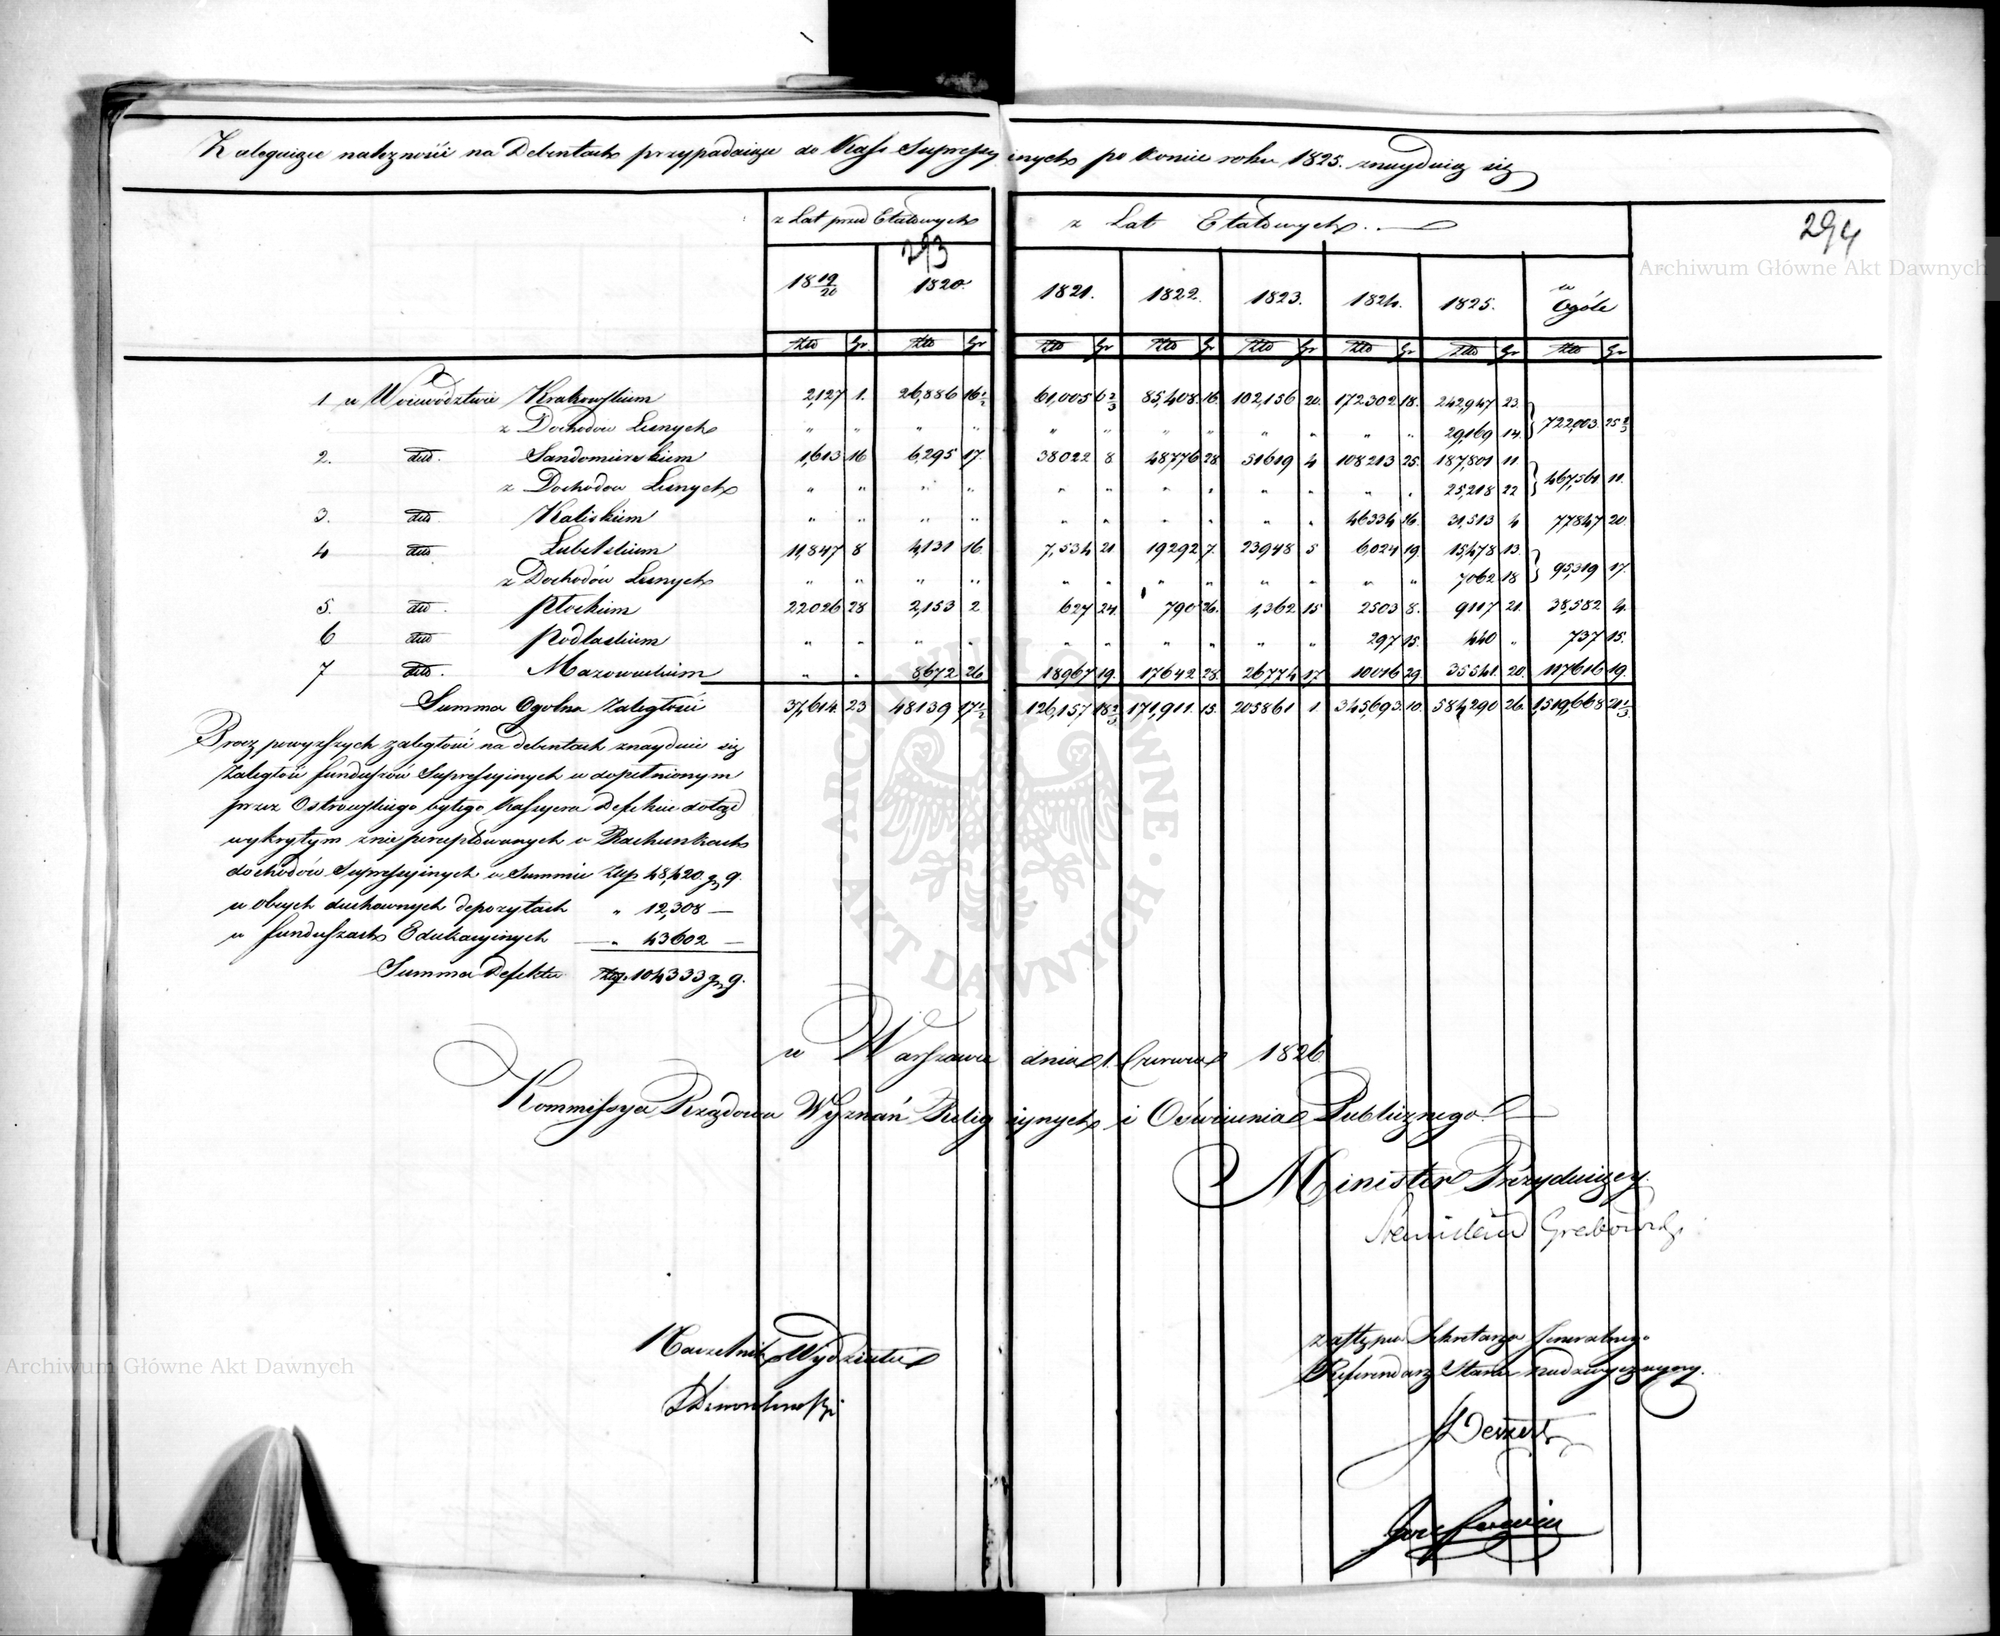 Zalegaiące należności na Debentach przypadaiące do Kass Supressyinych po koniec roku 1825. znayduią się
z Lat przed Etatowych
z Lat Etatowych.
293
294
18 19/20 1820. 1821. 1822. 1823. 1824. 1825. w Ogóle
Złło Gr Złło Gr Złło Gr Złło Gr Złło Gr Złło Gr Złło Gr Złło Gr
1 w Woiewództwie Krakowskiem 2,127 1. 26,886 16½ 61,005 6 2/3 85,408 16. 102,156 20. 172302 18. 242,947 23.
z Dochodów Lesnych " " " " " " " " " " " " 29,169 14. 722,003. 25 2/3
2. dtto. Sandomierskiem 1,613 16 6,295 17. 38022 8. 48,776 28 51619 4 108213 25. 187,801 11
z Dochodów Lesnych " " " " " " " " " " " " 25,218 22 467,561 11.
3. dtto. Kaliskiem " " " " " " " " " " 46334 16. 31,513 4 77847 20.
4 dtto Lubelskiem 11,847 8 4,131 16. 7,534 21. 19292 7. 23948 5 6,024 19. 15,478 13.
z Dochodów Lesnych " " " " " " " " " " " " 7062 18 95,319 17.
5. dtto. Płockiem 22026 28 2,153 2 627 24. 790 26. 1,362 15 2503 8. 9117 21. 38,582 4.
6 dtto Podlaskiem " " " " " " " " " " 297 15. 440 " 737 15.
7 dtto. Mazowieckiem " " 8672 26 18967 19. 17642 28. 26,774 17 10016 29. 35541. 20. 117616 19.
Summa Ogolna Zaległości 37,614. 23 48139 17½ 126,157 18 2/3 171,911. 15. 205861 1. 345,693. 10. 584290 26. 1,519,668 21 1/3
Procz powyższych zaległości na debentach znayduie się
Zaległość funduszów Supressyinych w dopełnionym
przez Ostrowskiego byłego Kassyera Defekcie dotąd
wykrytym z nieperceptowanych w Rachunkach
dochodów Supressyinych w Summie Złłp 48,420. gr 9.
w obcych duchownych depozytach " 12,308 —
w funduszach Edukacyinych — " 43602 —
Summa Defektu Złłp. 104333 gr 9.
w Warszawie dnia 1. Czerwca 1826
Kommissya Rządowa Wyznań Religiynych i Oświecenia Publicznego.
Minister Prezyduiący.
Stanisław Grabowski
Naczelnik Wydziału
zastępca Sekretarza Jeneralnego
Referendarz Stanu Nadzwyczayny.
Archiwum Główne Akt Dawnych
Archiwum Główne Akt Dawnych
ARCHIWUM GŁÓWNE · AKT DAWNYCH ·